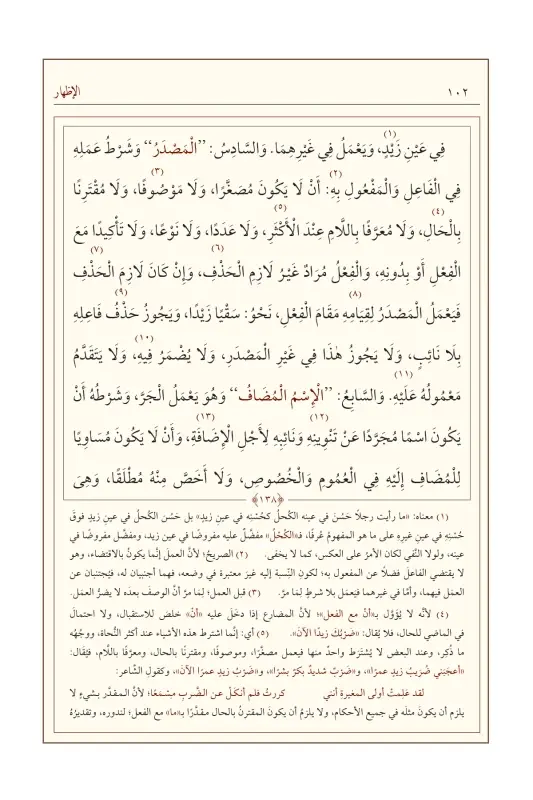 ١٠٢ الإظهار
فِي عَيْنِ زَيْدٍ، وَيَعْمَلُ فِي غَيْرِهِمَا.(١) وَالسَّادِسُ: ‘‘الْمَصْدَرُ’’ وَشَرْطُ عَمَلِهِ
فِي الْفَاعِلِ وَالْمَفْعُولِ بِهِ:(٢) أَنْ لَا يَكُونَ مُصَغَّرًا، وَلَا مَوْصُوفًا،(٣) وَلَا مُقْتَرِنًا
بِالْحَالِ،(٤) وَلَا مُعَرَّفًا بِاللَّامِ عِنْدَ الْأَكْثَرِ،(٥) وَلَا عَدَدًا، وَلَا نَوْعًا، وَلَا تَأْكِيدًا مَعَ
الْفِعْلِ أَوْ بِدُونِهِ، وَالْفِعْلُ مُرَادٌ غَيْرُ لَازِمِ الْحَذْفِ،(٦) وَإِنْ كَانَ لَازِمَ الْحَذْفِ(٧)
فَيَعْمَلُ الْمَصْدَرُ لِقِيَامِهِ مَقَامَ الْفِعْلِ،(٨) نَحْوُ: سَقْيًا زَيْدًا، وَيَجُوزُ حَذْفُ فَاعِلِهِ(٩)
بِلَا نَائِبٍ، وَلَا يَجُوزُ هٰذَا فِي غَيْرِ الْمَصْدَرِ، وَلَا يُضْمَرُ فِيهِ،(١٠) وَلَا يَتَقَدَّمُ
مَعْمُولُهُ عَلَيْهِ.(١١) وَالسَّابِعُ: ‘‘الْإِسْمُ الْمُضَافُ’’ وَهُوَ يَعْمَلُ الْجَرَّ، وَشَرْطُهُ أَنْ
يَكُونَ اسْمًا مُجَرَّدًا عَنْ تَنْوِينِهِ وَنَائِبِهِ(١٢) لِأَجْلِ الْإِضَافَةِ،(١٣) وَأَنْ لَا يَكُونَ مُسَاوِيًا
لِلْمُضَافِ إِلَيْهِ فِي الْعُمُومِ وَالْخُصُوصِ، وَلَا أَخَصَّ مِنْهُ مُطْلَقًا، وَهِىَ
﴿١٣٨﴾
(١) معناه: «ما رأيت رجلًا حَسُنَ في عينه الكُحلُ كحُسْنِه في عين زيدٍ» بل حَسُن الكُحلُ في عين زيدٍ فوقَ
حُسْنِه في عينِ غيرِه على ما هو المفهومُ عُرفًا، فـ«الكُحْلُ» مفضَّل عليه مفروضًا في عين زيد، ومفضَّل مفروضًا في
عينه، ولولا النَّفي لكان الأمرُ على العكسِ، كما لا يخفى. (٢) الصريحُ؛ لأنَّ العملَ إنَّما يكونُ بالاقتضاء، وهو
لا يقتضي الفاعلَ فضلًا عن المفعول به؛ لكونِ النِّسبة إليه غيرَ معتبرة في وضعه، فهما أجنبيان له، فيُجتنبان عن
العمل فيهما، وأمَّا في غيرهما فيَعمَل بلا شرطٍ لِمَا مرَّ. (٣) قبل العمل؛ لِمَا مرَّ أنَّ الوصفَ بعدَه لا يضرُّ العمَلَ.
(٤) لأنَّه لا يُؤَوَّل بـ«أنْ مع الفعل»؛ لأنَّ المضارع إذا دخَلَ عليه «أنْ» خلصَ للاستقبال، ولا احتمالَ
في الماضي للحال، فلا يُقال: «ضَرْبُكَ زيدًا الآنَ». (٥) أي: إنَّما اشترط هذه الأشياء عند أكثر النُّحاة، ووجْهُه
ما ذُكِر، وعند البعض لا يُشْتَرَط واحدٌ منها فيعمل مصغَّرًا، وموصوفًا، ومقترنًا بالحال، ومعرَّفًا باللَّام، فيُقال:
«أعجَبَني ضُرَيبُ زيدٍ عمرًا»، و«ضَرْبٌ شديدٌ بكرٌ بشرًا»، و«ضَرْبُ زيدٍ عمرًا الآنَ»، وكقولِ الشَّاعر:
لقد عَلِمتْ أُولى المغيرةِ أنَّني كررتُ فلم أَنكَلْ عن الضَّربِ مِسْمَعًا؛ لأنَّ المـقدَّر بـشيءٍ لا
يلزم أن يكونَ مثلَه في جميع الأحكام، ولا يلزمُ أن يكونَ المقترنُ بالحال مقدَّرًا بـ«ما» مع الفعل؛ لندوره، وتقديرُهُ